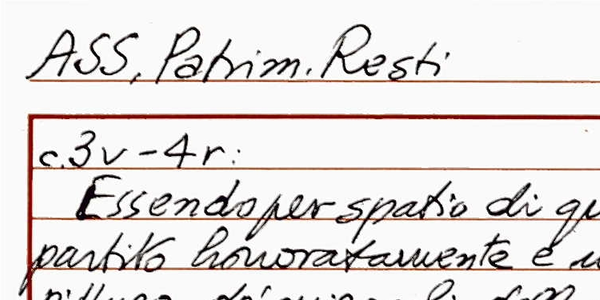 ASS, Patrim. Resti
c. 3v - 4r:
Essendo per spatio di
partito honoratamente e